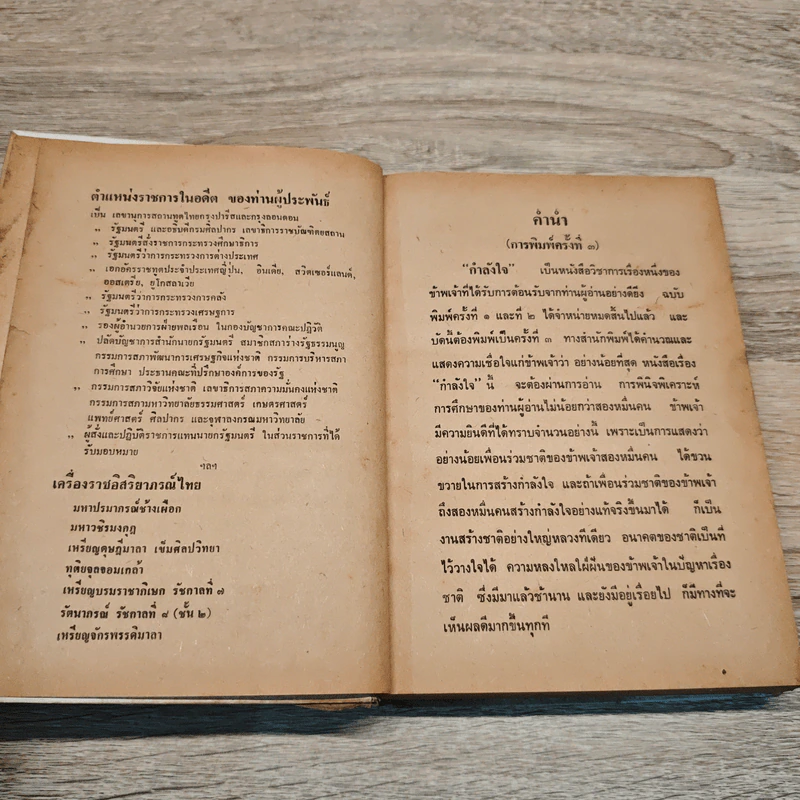 ตำแหน่งราชการในอดีต ของท่านผู้ประพันธ์
เป็น เลขานุการสถานทูตไทยกรุงปารีสและกรุงลอนดอน
„ รัฐมนตรี และอธิบดีกรมศิลปากร เลขาธิการราชบัณฑิตยสถาน
„ รัฐมนตรีสั่งราชการกระทรวงศึกษาธิการ
„ รัฐมนตรีว่าการกระทรวงการต่างประเทศ
„ เอกอัครราชทูตประจำประเทศญี่ปุ่น, อินเดีย, สวิตเซอร์แลนด์,
ออสเตรีย, ยูโกสลาเวีย
„ รัฐมนตรีว่าการกระทรวงการคลัง
„ รัฐมนตรีว่าการกระทรวงเศรษฐการ
„ รองผู้อำนวยการฝ่ายพลเรือน ในกองบัญชาการคณะปฏิวัติ
„ ปลัดบัญชาการสำนักนายกรัฐมนตรี สมาชิกสภาร่างรัฐธรรมนูญ
กรรมการสภาพัฒนาการเศรษฐกิจแห่งชาติ กรรมการบริหารสภา
การศึกษา ประธานคณะที่ปรึกษาองค์การของรัฐ
„ กรรมการสภาวิจัยแห่งชาติ เลขาธิการสภาความมั่นคงแห่งชาติ
กรรมการสภามหาวิทยาลัยธรรมศาสตร์ เกษตรศาสตร์
แพทย์ศาสตร์ ศิลปากร และจุฬาลงกรณมหาวิทยาลัย
„ ผู้สั่งและปฏิบัติราชการแทนนายกรัฐมนตรี ในส่วนราชการที่ได้
รับมอบหมาย
ฯลฯ
เครื่องราชอิสริยาภรณ์ไทย
มหาปรมาภรณ์ช้างเผือก
มหาวชิรมงกุฎ
เหรียญดุษฎีมาลา เข็มศิลปวิทยา
ทุติยจุลจอมเกล้า
เหรียญบรมราชาภิเษก รัชกาลที่ ๗
รัตนาภรณ์ รัชกาลที่ ๘ (ชั้น ๒)
เหรียญจักรพรรดิมาลา
คำนำ
(การพิมพ์ครั้งที่ ๓)
“กำลังใจ” เป็นหนังสือวิชาการเรื่องหนึ่งของ
ข้าพเจ้าที่ได้รับการต้อนรับจากท่านผู้อ่านอย่างดียิ่ง ฉบับ
พิมพ์ครั้งที่ ๑ และที่ ๒ ได้จำหน่ายหมดสิ้นไปแล้ว และ
บัดนี้ต้องพิมพ์เป็นครั้งที่ ๓ ทางสำนักพิมพ์ได้คำนวณและ
แสดงความเชื่อใจแก่ข้าพเจ้าว่า อย่างน้อยที่สุด หนังสือเรื่อง
“กำลังใจ” นี้ จะต้องผ่านการอ่าน การพินิจพิเคราะห์
การศึกษาของท่านผู้อ่านไม่น้อยกว่าสองหมื่นคน ข้าพเจ้า
มีความยินดีที่ได้ทราบจำนวนอย่างนี้ เพราะเป็นการแสดงว่า
อย่างน้อยเพื่อนร่วมชาติของข้าพเจ้าสองหมื่นคน ได้ขวน
ขวายในการสร้างกำลังใจ และถ้าเพื่อนร่วมชาติของข้าพเจ้า
ถึงสองหมื่นคนสร้างกำลังใจอย่างแท้จริงขึ้นมาได้ ก็เป็น
งานสร้างชาติอย่างใหญ่หลวงทีเดียว อนาคตของชาติเป็นที่
ไว้วางใจได้ ความหลงใหลใฝ่ฝันของข้าพเจ้าในปัญหาเรื่อง
ชาติ ซึ่งมีมาแล้วช้านาน และยังมีอยู่เรื่อยไป ก็มีทางที่จะ
เห็นผลดีมากขึ้นทุกที